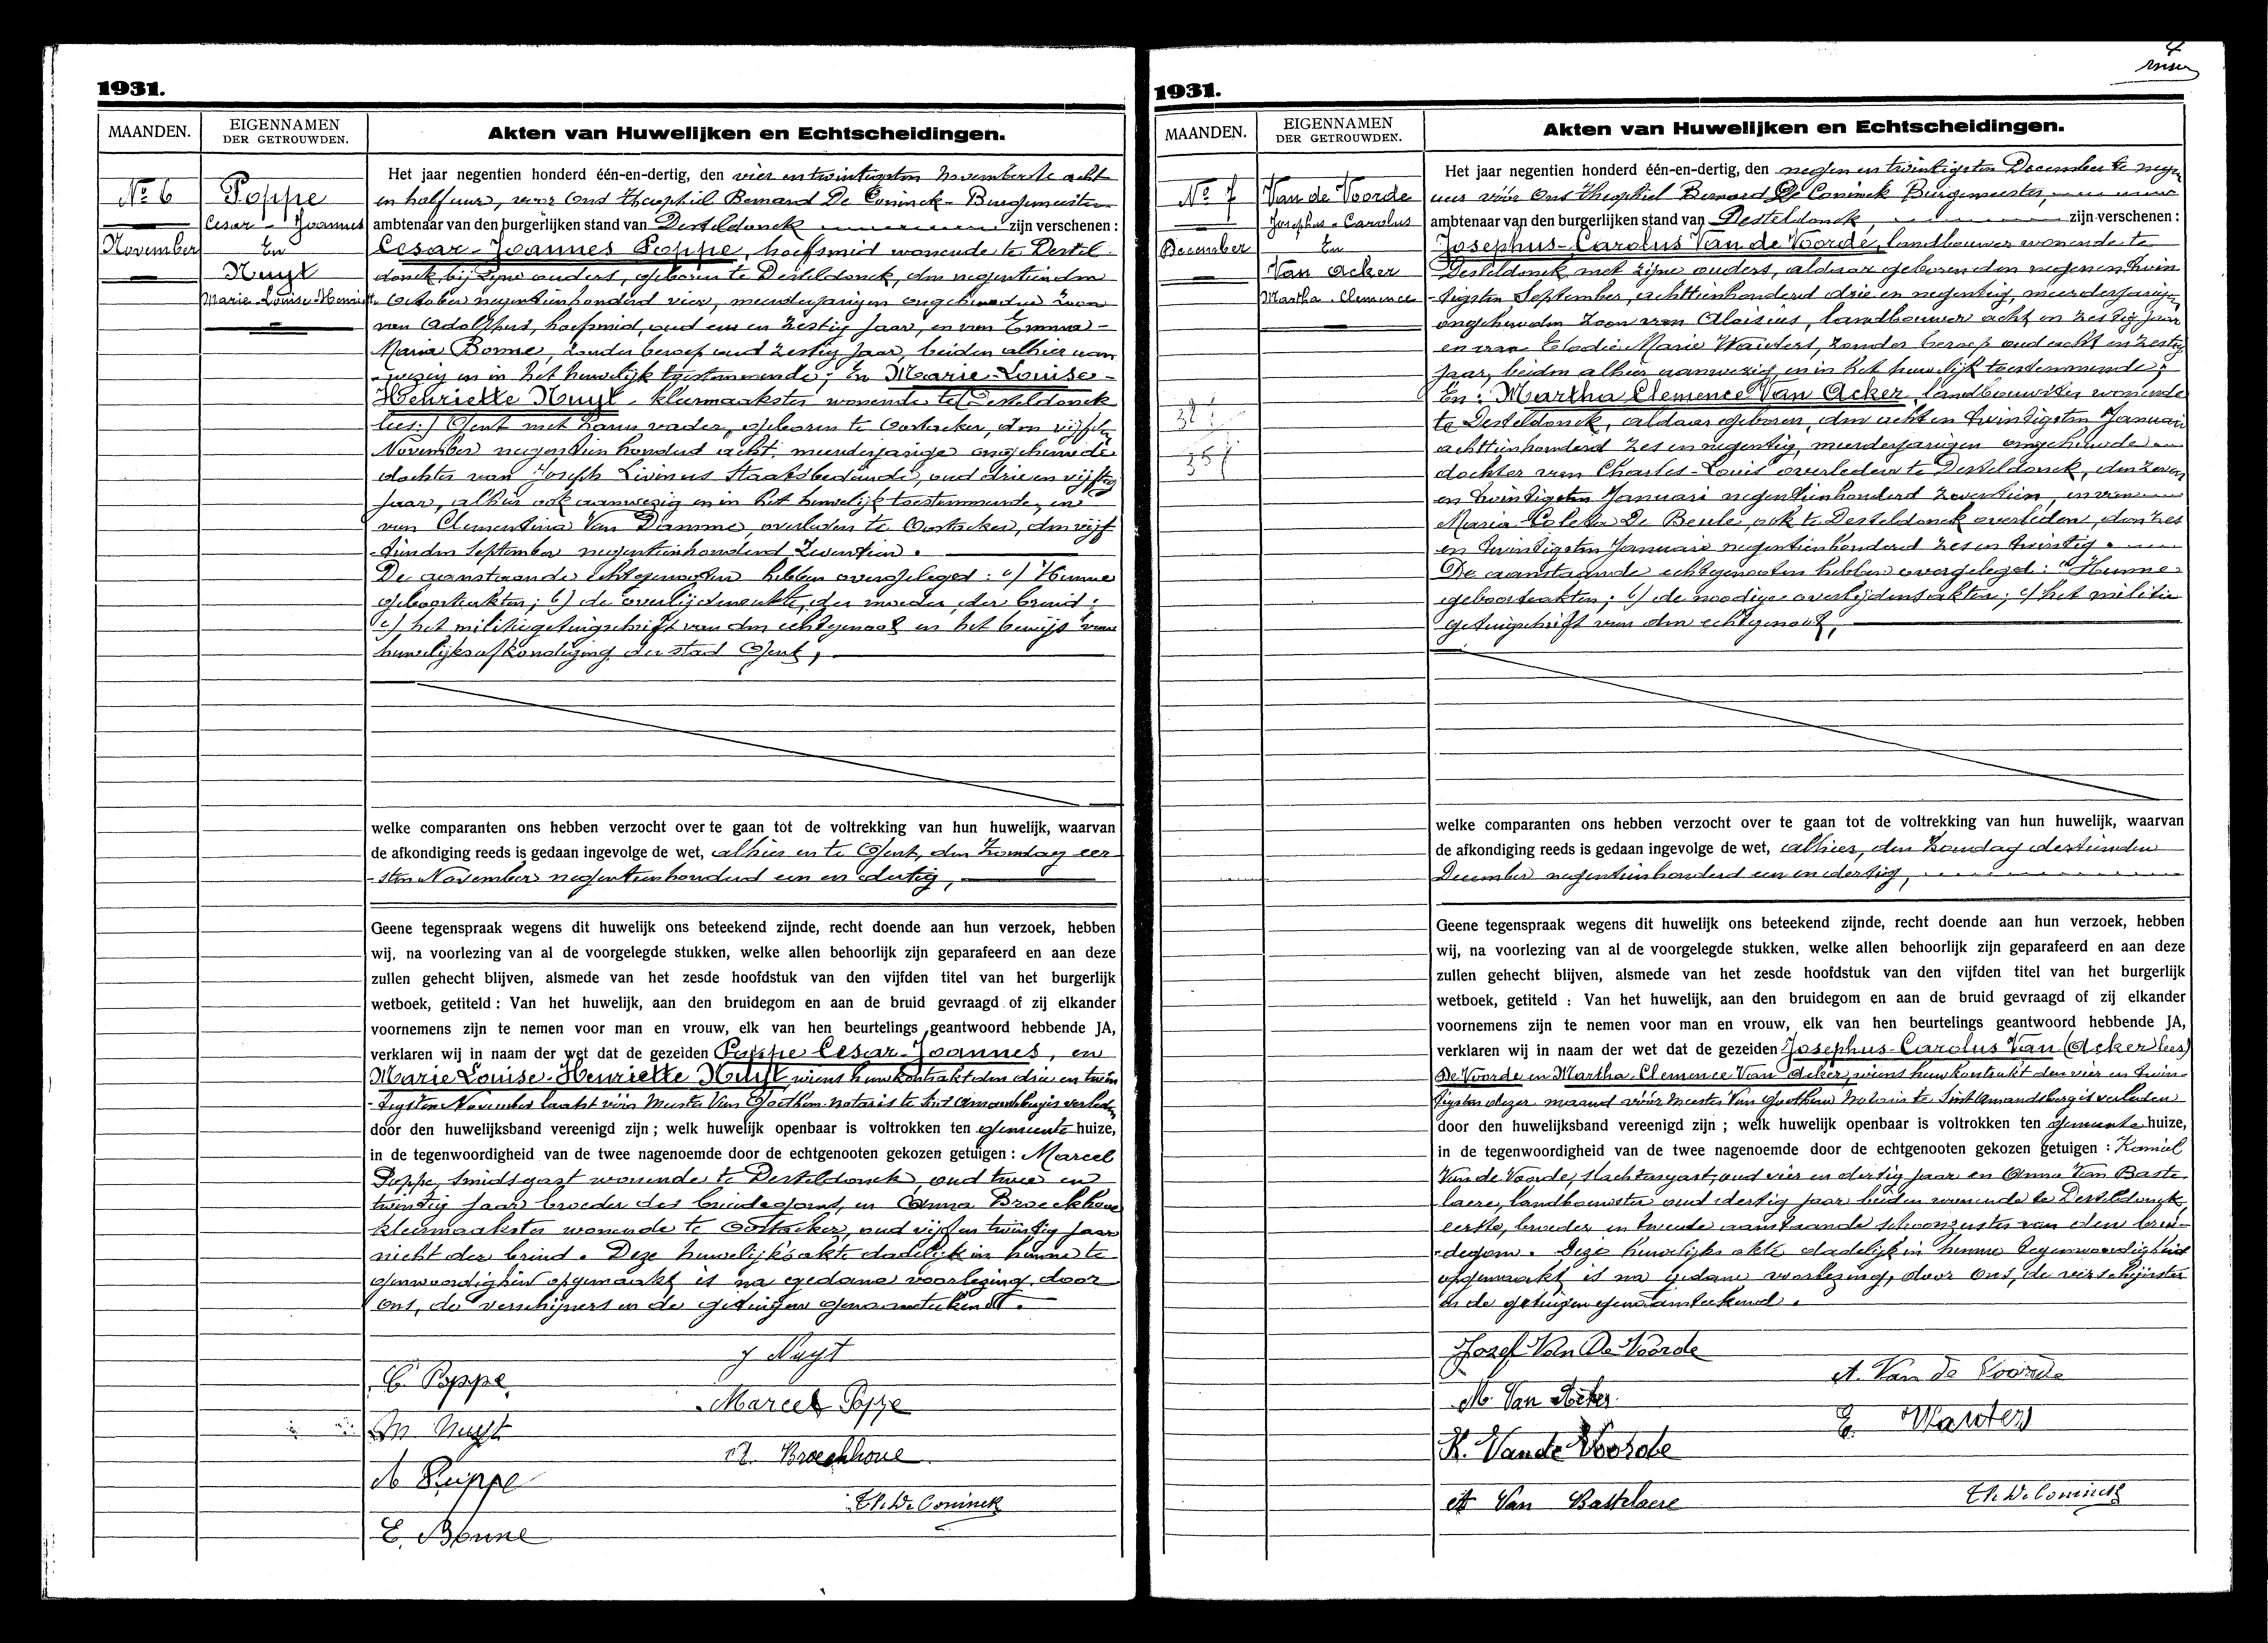 1931.
MAANDEN.
EIGENNAMEN
DER GETROUWDEN.
Akten van Huwelijken en Echtscheidingen.
Nº 6
November
Poppe
Cesar - Joannes
En
Nuyt
Marie-Louise-Henriette
Het jaar negentien honderd één-en-dertig, den vier en twintigsten November te acht
en half ure, voor Ons Theophiel Bernard De Coninck - Burgemeester
ambtenaar van den burgerlijken stand van Desteldonck zijn verschenen :
Cesar - Joannes Poppe, hoefsmid wonende te Destel-
donck bij zijne ouders, geboren te Desteldonck, den negentienden
October negentienhonderd vier, meerderjarigen ongehuwden zoon
van Adolphus, hoefsmid, oud een en zestig jaar, en van Emma-
Maria Bonne, zonder beroep oud zestig jaar, beiden alhier aan
-wezig en in het huwelijk toestemmende; En Marie-Louise-
Henriette Nuyt kleermaakster wonende te (Desteldonck
lees:) Gent met haren vader, geboren te Oostacker, den vijfden
November negentienhonderd acht, meerderjarige ongehuwde
dochter van Joseph Livinus Staatsbediende, oud drie en vijftig
jaar, alhier ook aanwezig en in het huwelijk toestemmende, en
van Clementina Van Damme, overleden te Oostacker, den vijf
-tienden September negentienhonderd zeventien.
De aanstaande echtgenooten hebben overgelegd : a) Hunne
geboorteakten; b) de overlijdensakte, der moeder der bruid;
c) het militiegetuigschrift van den echtgenoot en het bewijs van
huwelijksafkondiging der stad Gent,
welke comparanten ons hebben verzocht over te gaan tot de voltrekking van hun huwelijk, waarvan
de afkondiging reeds is gedaan ingevolge de wet, alhier en te Gent, den Zondag eer
-sten November negentienhonderd een en dertig,
Geene tegenspraak wegens dit huwelijk ons beteekend zijnde, recht doende aan hun verzoek, hebben
wij, na voorlezing van al de voorgelegde stukken, welke allen behoorlijk zijn geparafeerd en aan deze
zullen gehecht blijven, alsmede van het zesde hoofdstuk van den vijfden titel van het burgerlijk
wetboek, getiteld : Van het huwelijk, aan den bruidegom en aan de bruid gevraagd of zij elkander
voornemens zijn te nemen voor man en vrouw, elk van hen beurtelings geantwoord hebbende JA,
verklaren wij in naam der wet dat de gezeiden Poppe Cesar-Joannes, en
Marie Louise-Henriette Nuyt, wiens huwkontrakt den drie en twin
-tigsten November laatst vóór Meester Van Goethem notaris te Sint Amandsberg is verleden
door den huwelijksband vereenigd zijn ; welk huwelijk openbaar is voltrokken ten gemeente huize,
in de tegenwoordigheid van de twee nagenoemde door de echtgenooten gekozen getuigen : Marcel
Poppe, smidsgast wonende te Desteldonck, oud twee en
twintig jaar broeder des bruidegoms, en Anna Broeckhove
kleermaakster wonende te Oostacker, oud vijf en twintig jaar
nicht der bruid. Deze huwelijksakte dadelijk in hunne te
genwoordigheid opgemaakt is na gedane voorlezing door
ons, de verschijners en de getuigen genaamteekend.
J Nuyt
C Poppe
Marcel Poppe
M Nuyt
A. Broeckhove
A Poppe
Th. De Coninck
E. Bonne
4
1931.
MAANDEN.
EIGENNAMEN
DER GETROUWDEN.
Akten van Huwelijken en Echtscheidingen.
Nº 7
December
Van de Voorde
Josephus - Carolus
En
Van Acker
Martha - Clemence
Het jaar negentien honderd één-en-dertig, den negen en twintigsten December te negen
uur vóór Ons Theophiel Bernard De Coninck Burgemeester,
ambtenaar van den burgerlijken stand van Desteldonck, zijn verschenen :
Josephus-Carolus Van de Voorde, landbouwer wonende te
Desteldonck met zijne ouders, aldaar geboren den negen en twin
-tigsten September, achttienhonderd drie en negentig, meerderjarigen
ongehuwden zoon van Aloisius, landbouwer acht en zestig jaar
en van Elodie Marie Wauters, zonder beroep oud acht en zestig
jaar, beiden alhier aanwezig en in het huwelijk toestemmende;
En : Martha Clemence Van Acker, landbouwster wonende
te Desteldonck, aldaar geboren, den acht en twintigsten Januari
achttienhonderd zes en negentig, meerderjarigen ongehuwde
dochter van Charles-Louis overleden te Desteldonck, den zeven
en twintigsten Januari negentienhonderd zeventien, en van
Maria Coleta De Beule ook te Desteldonck overleden, den zes
en twintigsten Januari negentienhonderd zes en twintig.
De aanstaande echtgenooten hebben overgelegd : a) Hunne
geboorteakten; b) de noodige overlijdensakten; c) het militie
getuigschrift van den echtgenoot,
welke comparanten ons hebben verzocht over te gaan tot de voltrekking van hun huwelijk, waarvan
de afkondiging reeds is gedaan ingevolge de wet, alhier, den Zondag dertienden
December negentienhonderd een en dertig,
Geene tegenspraak wegens dit huwelijk ons beteekend zijnde, recht doende aan hun verzoek, hebben
wij, na voorlezing van al de voorgelegde stukken, welke allen behoorlijk zijn geparafeerd en aan deze
zullen gehecht blijven, alsmede van het zesde hoofdstuk van den vijfden titel van het burgerlijk
wetboek, getiteld : Van het huwelijk, aan den bruidegom en aan de bruid gevraagd of zij elkander
voornemens zijn te nemen voor man en vrouw, elk van hen beurtelings geantwoord hebbende JA,
verklaren wij in naam der wet dat de gezeiden Josephus-Carolus Van (Acker lees)
De Voorde en Martha Clemence Van Acker, wiens huwkontrakt den vier en twin-
tigsten dezer maand vóór meester Van Goethem Notaris te Sint Amandsberg is verleden
door den huwelijksband vereenigd zijn ; welk huwelijk openbaar is voltrokken ten gemeente huize,
in de tegenwoordigheid van de twee nagenoemde door de echtgenooten gekozen getuigen : Kamiel
Van de Voorde, slachtersgast, oud vier en dertig jaar en Anna Van Baste
laere, landbouwster oud dertig jaar beiden wonende te Desteldonck,
eerste, broeder en tweede aanstaande schoonzuster van den brui-
-degom. Deze huwelijks akte dadelijk in hunne tegenwoordigheid
opgemaakt is na gedane voorlezing, door Ons, de verschijners
en de getuigen genaamteekend.
Jozef Van De Voorde
A. Van de Voorde
M. Van Acker
E. Wauters
K. Van de Voorde
A Van Bastelaere
Th. De Coninck